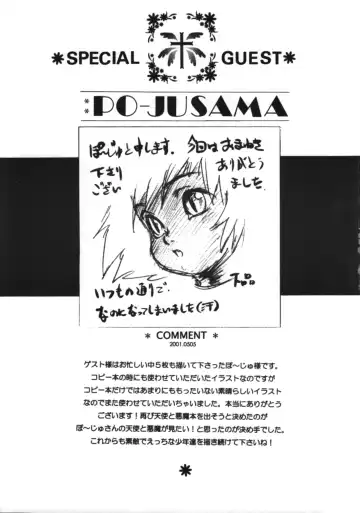 *SPECIAL GUEST*
**PO-JUSAMA
ぽーじゅと申します。今回はおまねき
下さり ありがとう
ござい ました
下品
いつもの通りで、
なってしまいました(汗)
* COMMENT *
2001.0505
ゲスト様はお忙しい中5枚も描いて下さったぽ〜じゅ様です。
コピー本の時にも使わせていただいたイラストなのですが
コピー本だけではあまりにももったいない素晴らしいイラスト
なのでまた使わせていただいちゃいました。本当にありがとう
ございます!再び天使と悪魔本を出そうと決めたのが
ぽ〜じゅさんの天使と悪魔が見たい!と思ったのが決め手でした。
これからも素敵でえっちな少年達を描き続けて下さいね!
*